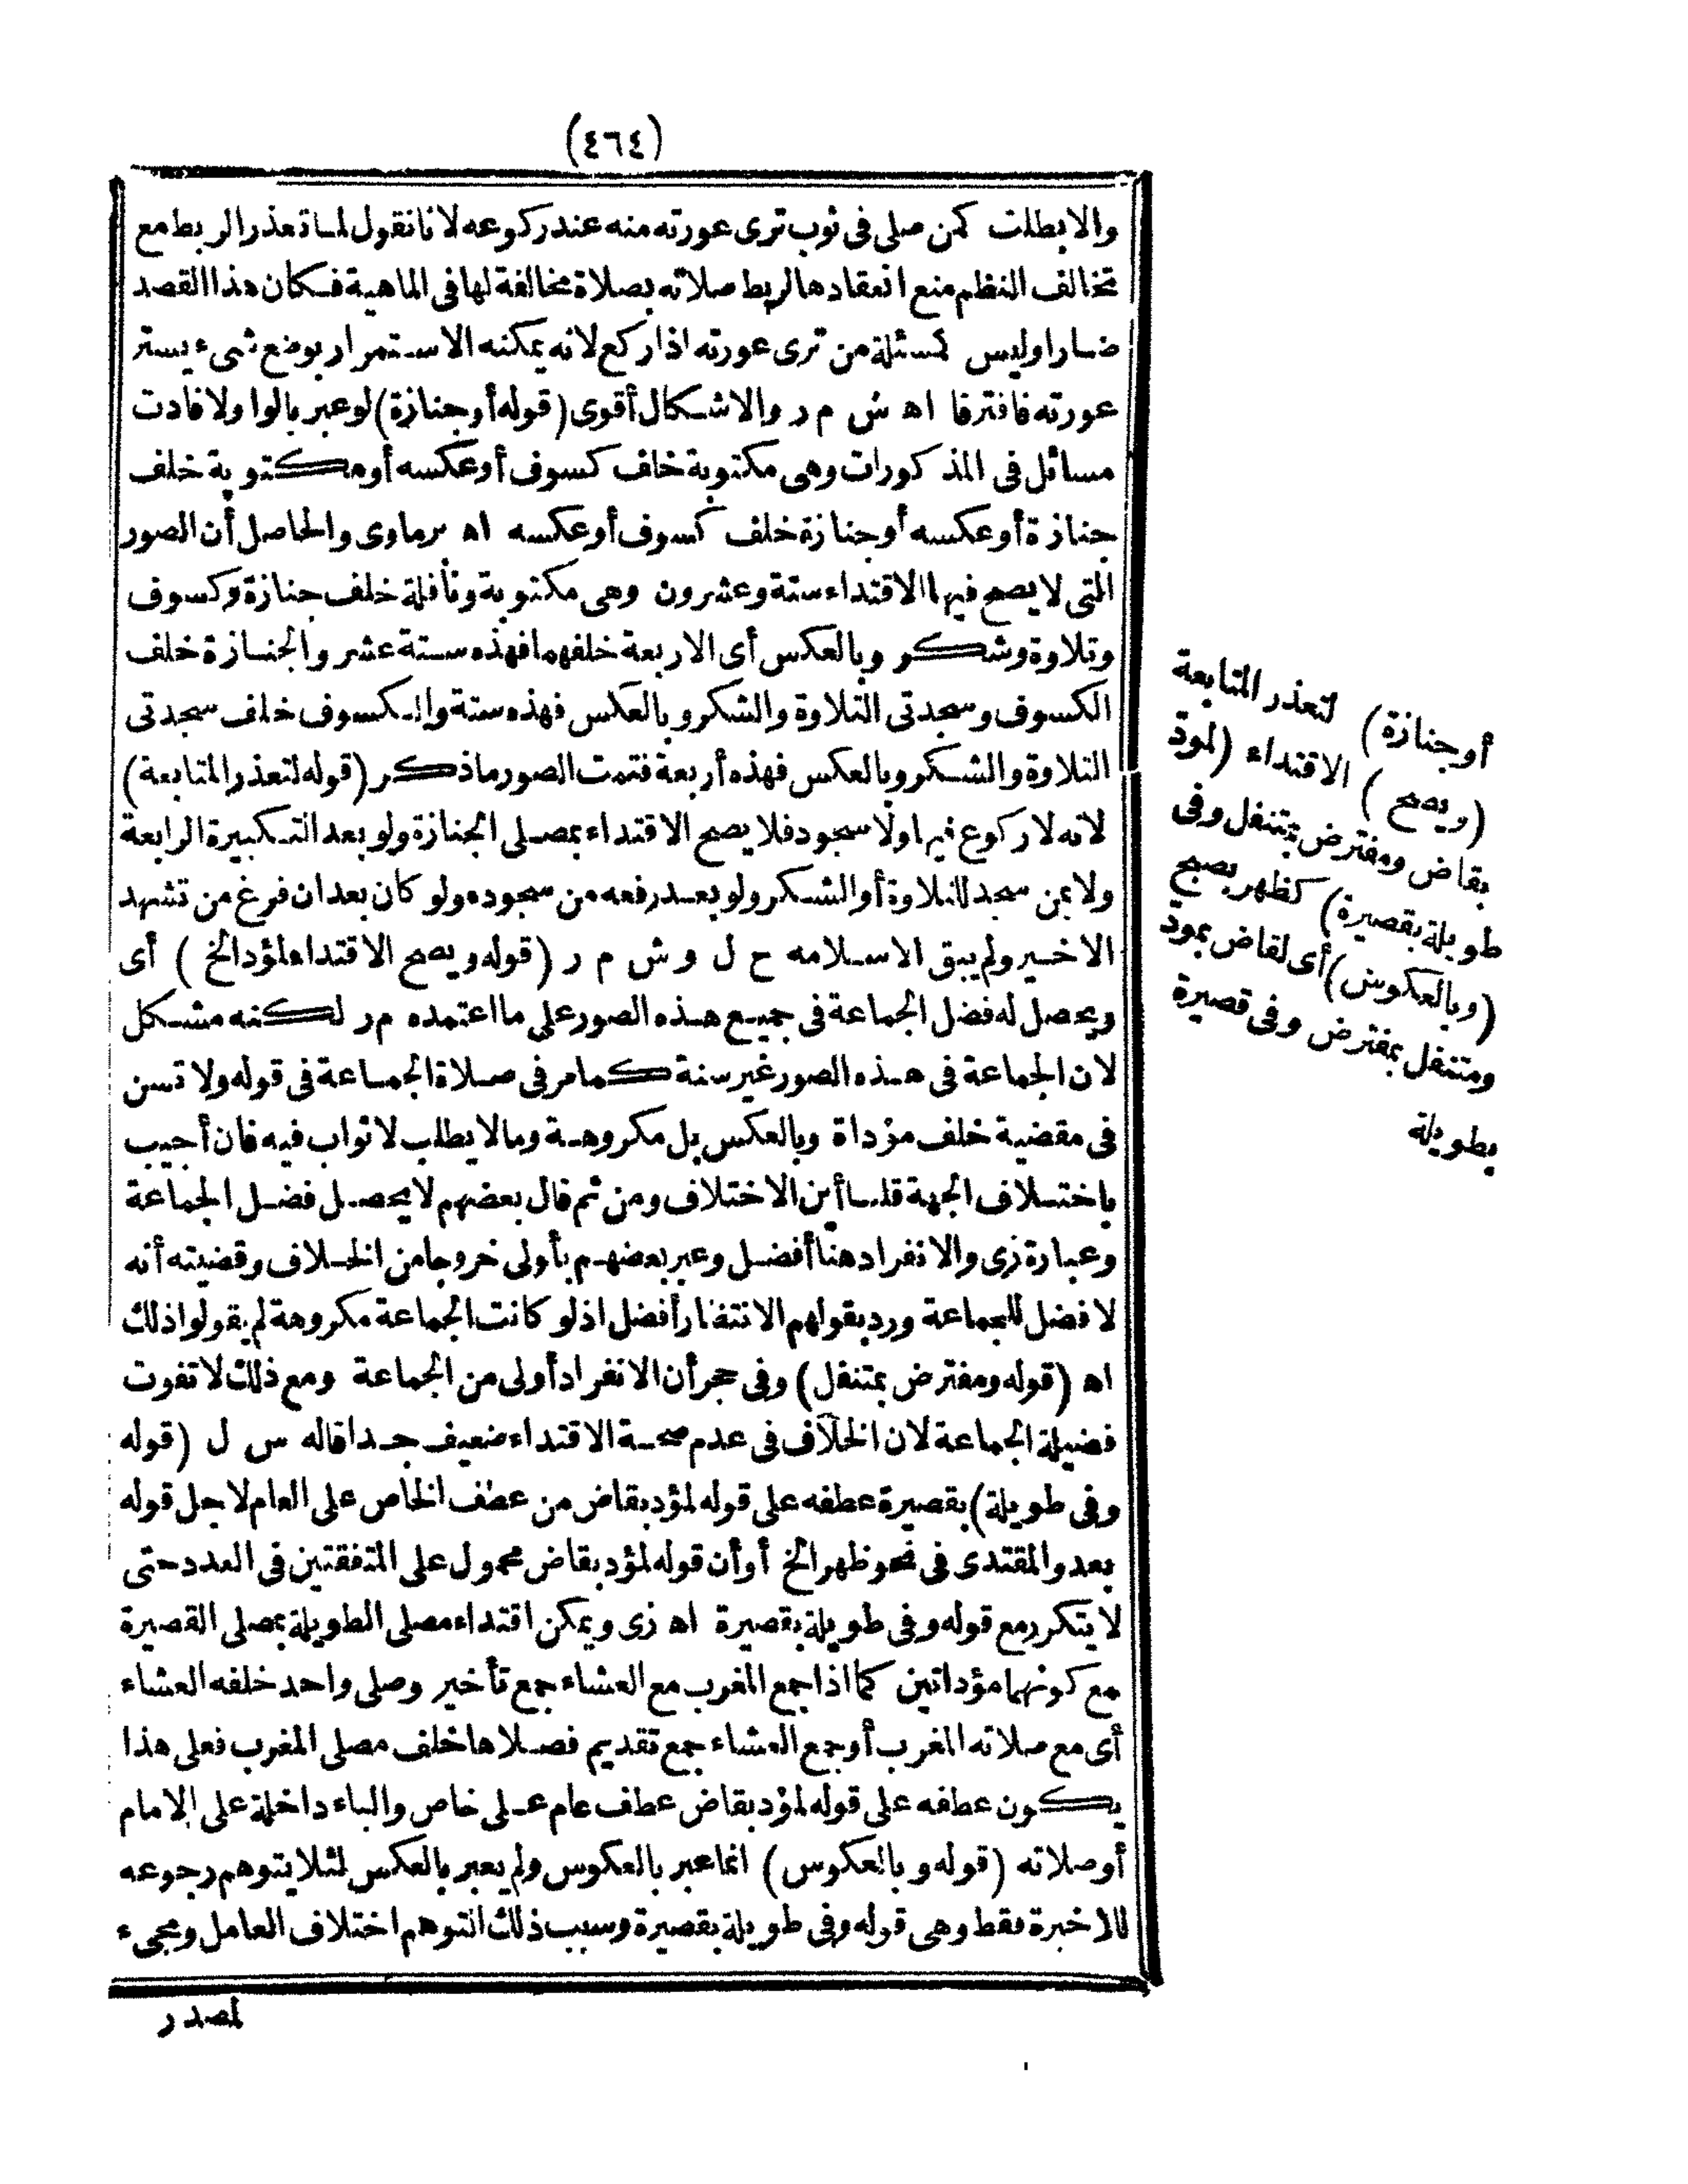 (٤٦٤)
والا بطلت كمن صلى فى ثوب ترى عورته منه عند ركوعه لانا نقول لما تعذر الربط مع
تخالف النظم منع انعقادها لربط صلاته بصلاة مخالفة لها فى الماهية فكان هذا القصد
ضارا وليس كمسئلة من ترى عورته اذا ركع لانه يمكنه الاستمرار بوضع شىء يستر
عورته فافترقا اه ش م ر والاشكال أقوى (قوله أو جنازة) لو عبر بالواو لافادت
مسائل فى المذكورات وهى مكتوبة خلف كسوف أو عكسه أو مكتوبة خلف
جنازة أو عكسه أو جنازة خلف كسوف أو عكسه اه برماوى والحاصل أن الصور
التى لا يصح فيها الاقتداء ستة وعشرون وهى مكتوبة ونافلة خلف جنازة وكسوف
وتلاوة وشكر وبالعكس أى الاربعة خلفهما فهذه ستة عشر والجنازة خلف
الكسوف وسجدتى التلاوة والشكر وبالعكس فهذه ستة والكسوف خلف سجدتى
التلاوة والشكر وبالعكس فهذه أربعة فتمت الصور ما ذكر (قوله لتعذر المتابعة)
لانه لا ركوع فيها ولا سجود فلا يصح الاقتداء بمصلى الجنازة ولو بعد التكبيرة الرابعة
ولا بمن سجد للتلاوة أو الشكر ولو بعد رفعه من سجوده ولو كان بعد ان فرغ من تشهد
الاخير ولم يبق الاسلامه ح ل وش م ر (قوله ويصح الاقتداء لمؤد الخ) أى
ويحصل له فضل الجماعة فى جميع هذه الصور على ما اعتمده م ر لكنه مشكل
لان الجماعة فى هذه الصور غير سنة كما مر فى صلاة الجماعة فى قوله ولا تسن
فى مقضية خلف مؤداة وبالعكس بل مكروهة وما لا يطلب لا ثواب فيه فان أجيب
باختلاف الجهة قلنا أين الاختلاف ومن ثم قال بعضهم لا يحصل فضل الجماعة
وعبارة زى والانفراد هنا أفضل وعبر بعضهم بأولى خروجا من الخلاف وقضيته أنه
لا فضل للجماعة ورد بقولهم الانتظار أفضل اذ لو كانت الجماعة مكروهة لم يقولوا ذلك
اه (قوله ومفترض بمتنفل) وفى حجر أن الانفراد أولى من الجماعة ومع ذلك لا تفوت
فضيلة الجماعة لان الخلاف فى عدم صحة الاقتداء ضعيف جدا قاله س ل (قوله
وفى طويلة) بقصيرة عطفه على قوله لمؤد بقاض من عطف الخاص على العام لاجل قوله
بعد والمقتدى فى نحو ظهر الخ أو أن قوله لمؤد بقاض محمول على المتفقتين فى العدد حتى
لا يتكرر مع قوله وفى طويلة بقصيرة اه زى ويمكن اقتداء مصلى الطويلة بمصلى القصيرة
مع كونهما مؤداتين كما اذا جمع المغرب مع العشاء جمع تأخير وصلى واحد خلفه العشاء
أى مع صلاته المغرب أو جمع العشاء جمع تقديم فصلاها خلف مصلى المغرب فعلى هذا
يكون عطفه على قوله لمؤد بقاض عطف عام على خاص والباء داخلة على الامام
أو صلاته (قوله وبالعكوس) انما عبر بالعكوس ولم يعبر بالعكس لئلا يتوهم رجوعه
للاخيرة فقط وهى قوله وفى طويلة بقصيرة وسبب ذلك التوهم اختلاف العامل ومجىء
لمصدر
أو جنازة) لتعذر المتابعة
(ويصح) الاقتداء (لمؤد
بقاض ومفترض بمتنفل وفى
طويلة بقصيرة) كظهر بصبح
(وبالعكوس) أى لقاض بمؤد
ومتنفل بمفترض وفى قصيرة
بطويلة